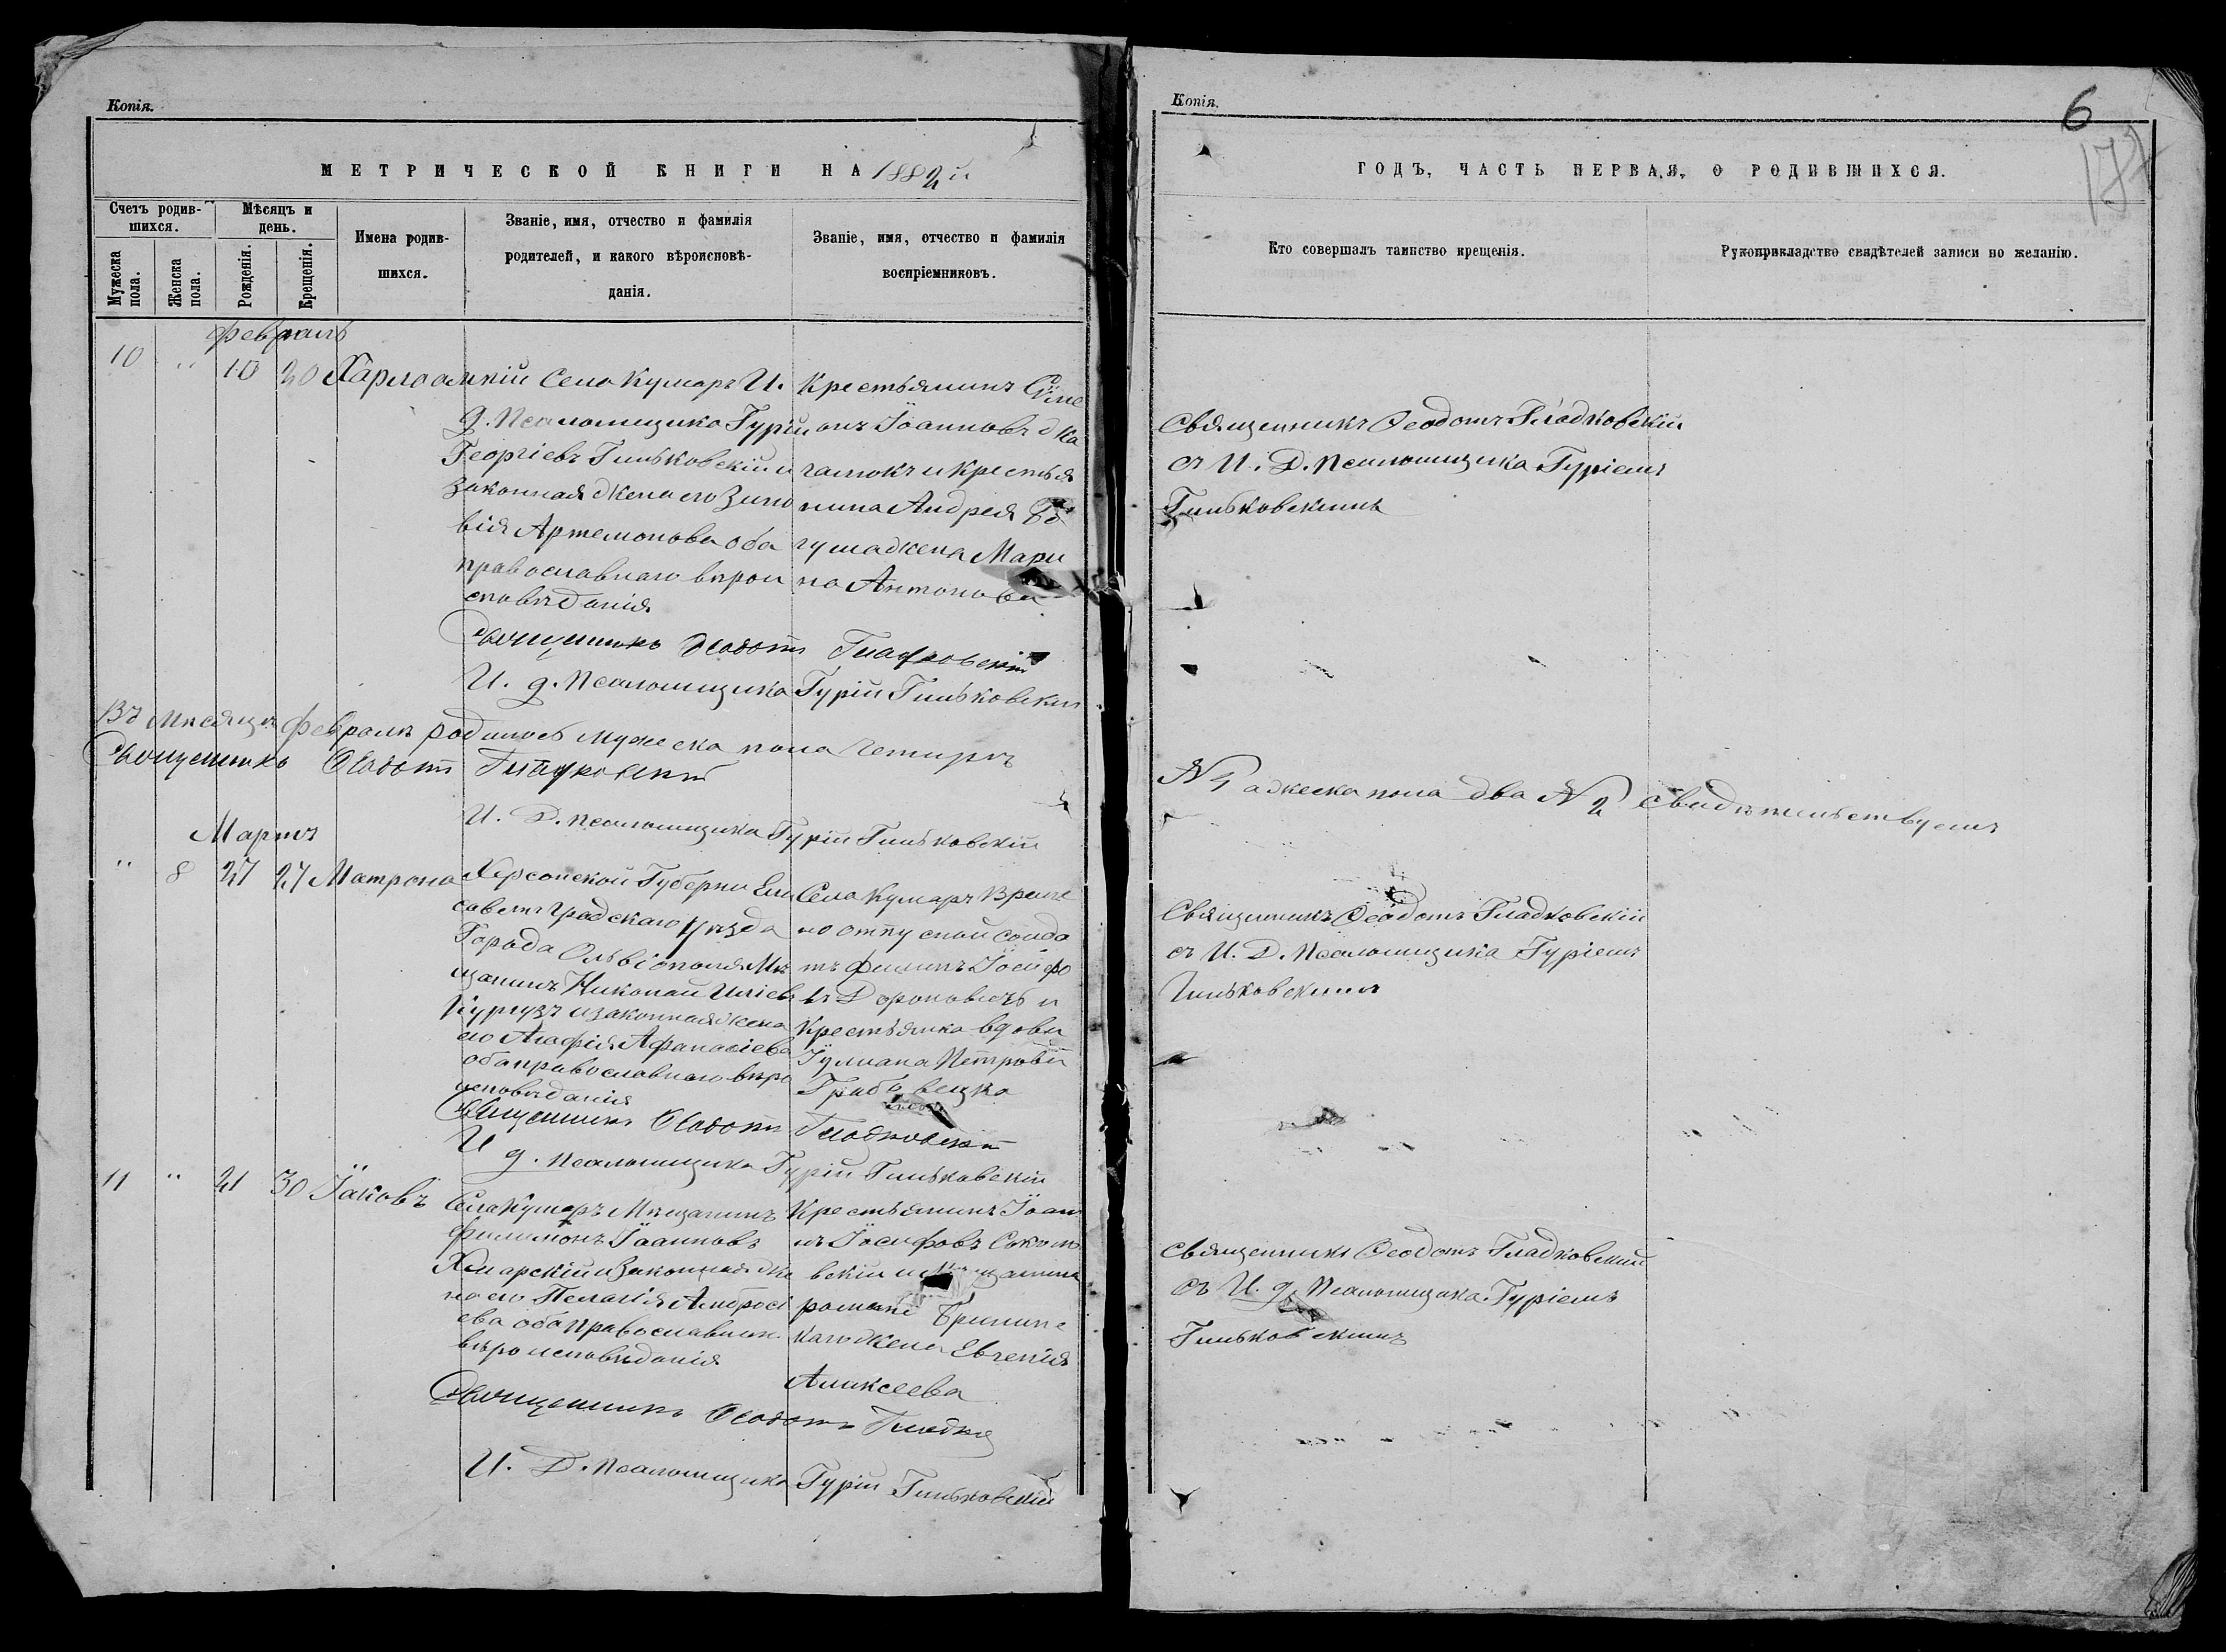 Копія.
МЕТРИЧЕСКОЙ КНИГИ НА 1882й
Счетъ родив-
шихся.
Мѣсяцъ и
день.
Мужеска
пола.
Женска
пола.
Рожденія.
Крещенія.
Имена родив-
шихся.
Званіе, имя, отчество и фамилія
родителей, и какого вѣроисповѣ-
данія.
Званіе, имя, отчество и фамилія
воспріемниковъ.
Февраль
10 " 10 20
Села Кумаръ И.
д. Псаломщика Гурій
Георгіевъ Гиньковскій и
законная жена его Зино
вія Артемонова оба
православнаго вѣрои
сповѣданія
Крестьянинъ Сѵме
онъ Іоанновъ
и крестья
нина Андрея
жена Мари
на Антонова
Священникъ Ѳеодотъ Гладковскій
И. д. Псаломщика Гурій Гиньковскій
Въ мѣсяцѣ Февралѣ родилось мужеска пола четыре
Священникъ Ѳеодотъ Гладковскій
И. Д. Псаломщика Гурій Гиньковскій
Мартъ
" 8 27 27 Матрона
Херсонской Губерни Ели
саветградскаго уѣзда
Города Ольвіополя Мѣ
щанинъ Николай Иліевъ
и законная жена
его Агафія Афанасіева
оба православнаго вѣро
исповѣданія
Села Кумаръ Време
но отпускной солда
тъ Филипъ Іосифо
въ Дороновичъ и
Крестьянка вдова
Іулиана Петрова
Священникъ Ѳеодотъ Гладковскій
И д. Псаломщика Гурій Гиньковскій
11 " 21 30 Іаковъ
Села Кумаръ Мѣщанинъ
Филимонъ Іоанновъ
Хмарскій и законная же
на его Пелагія Амбросі
ева оба православнаго
вѣроисповѣданія
Крестьянинъ Іоан
нъ Іосифовъ
жена Евгенія
Аликсеева
Священникъ Ѳеодотъ
И. Д. Псаломщика Гурій Гиньковскій
Копія.
6
ГОДЪ, ЧАСТЬ ПЕРВАЯ, О РОДИВШИХСЯ.
Кто совершалъ таинство крещенія.
Рукоприкладство свидѣтелей записи по желанію.
Священникъ Ѳеодотъ Гладковскій
съ И. Д. Псаломщика Гуріемъ
Гиньковскимъ
№ 4 а женска пола два № 2 свидѣтельствуемъ
Священникъ Ѳеодотъ Гладковскій
съ И. Д. Псаломщика Гуріемъ
Гиньковскимъ
Священникъ Ѳеодотъ Гладковскій
съ И. д. Псаломщика Гуріемъ
Гиньковскимъ